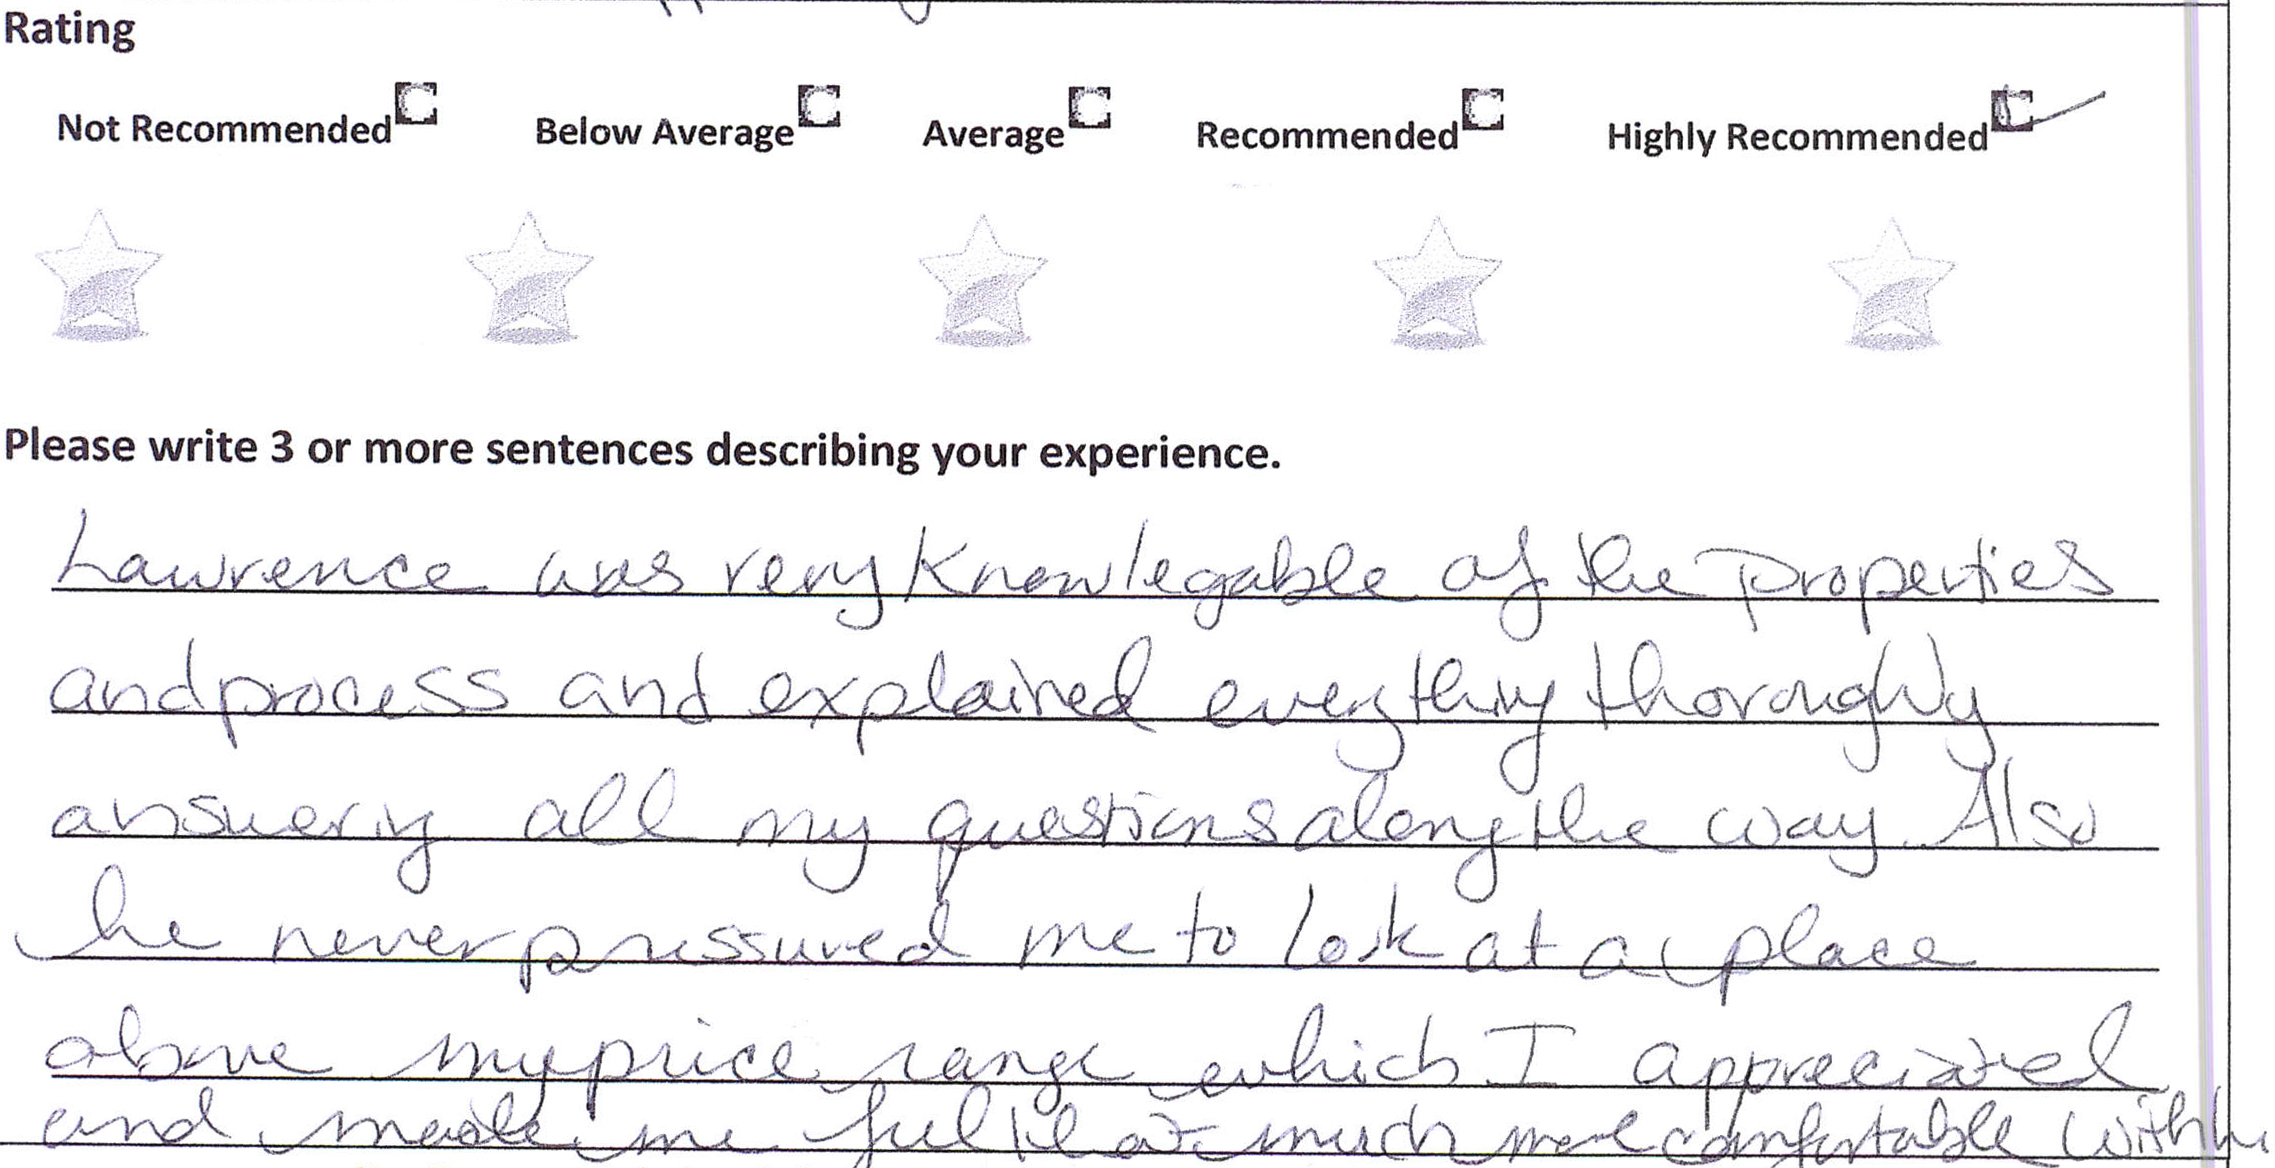 Rating
Not Recommended Below Average Average Recommended Highly Recommended
Please write 3 or more sentences describing your experience.
Lawrence was very Knowlegable of the properties
and process and explained everything thoroughly
answering all my questions along the way. Also
he never pressured me to look at a place
above my price range which I appreciated
and made me feel that much more comfortable with